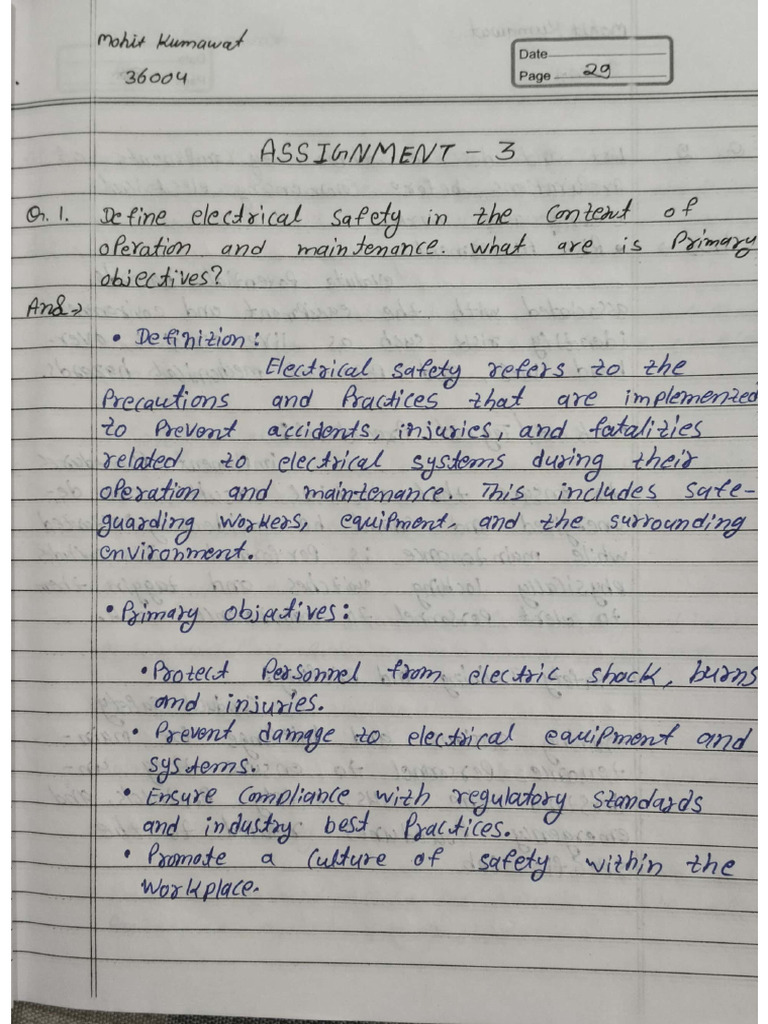 Mohit Kumawat
36004
Date
Page 29
ASSIGNMENT - 3
Q. 1. Define electrical safety in the content of
operation and maintenance. what are is Primary
objectives?
Ans →
• Definition:
Electrical safety refers to the
Precautions and Practices that are implemented
to Prevent accidents, injuries, and fatalities
related to electrical systems during their
operation and maintenance. This includes safe-
guarding workers, equipment, and the surrounding
environment.
• Primary objectives:
• Protect Personnel from electric shock, burns
and injuries.
• Prevent damage to electrical equipment and
systems.
• Ensure compliance with regulatory standards
and industry best Practices.
• Promote a culture of safety within the
workplace.